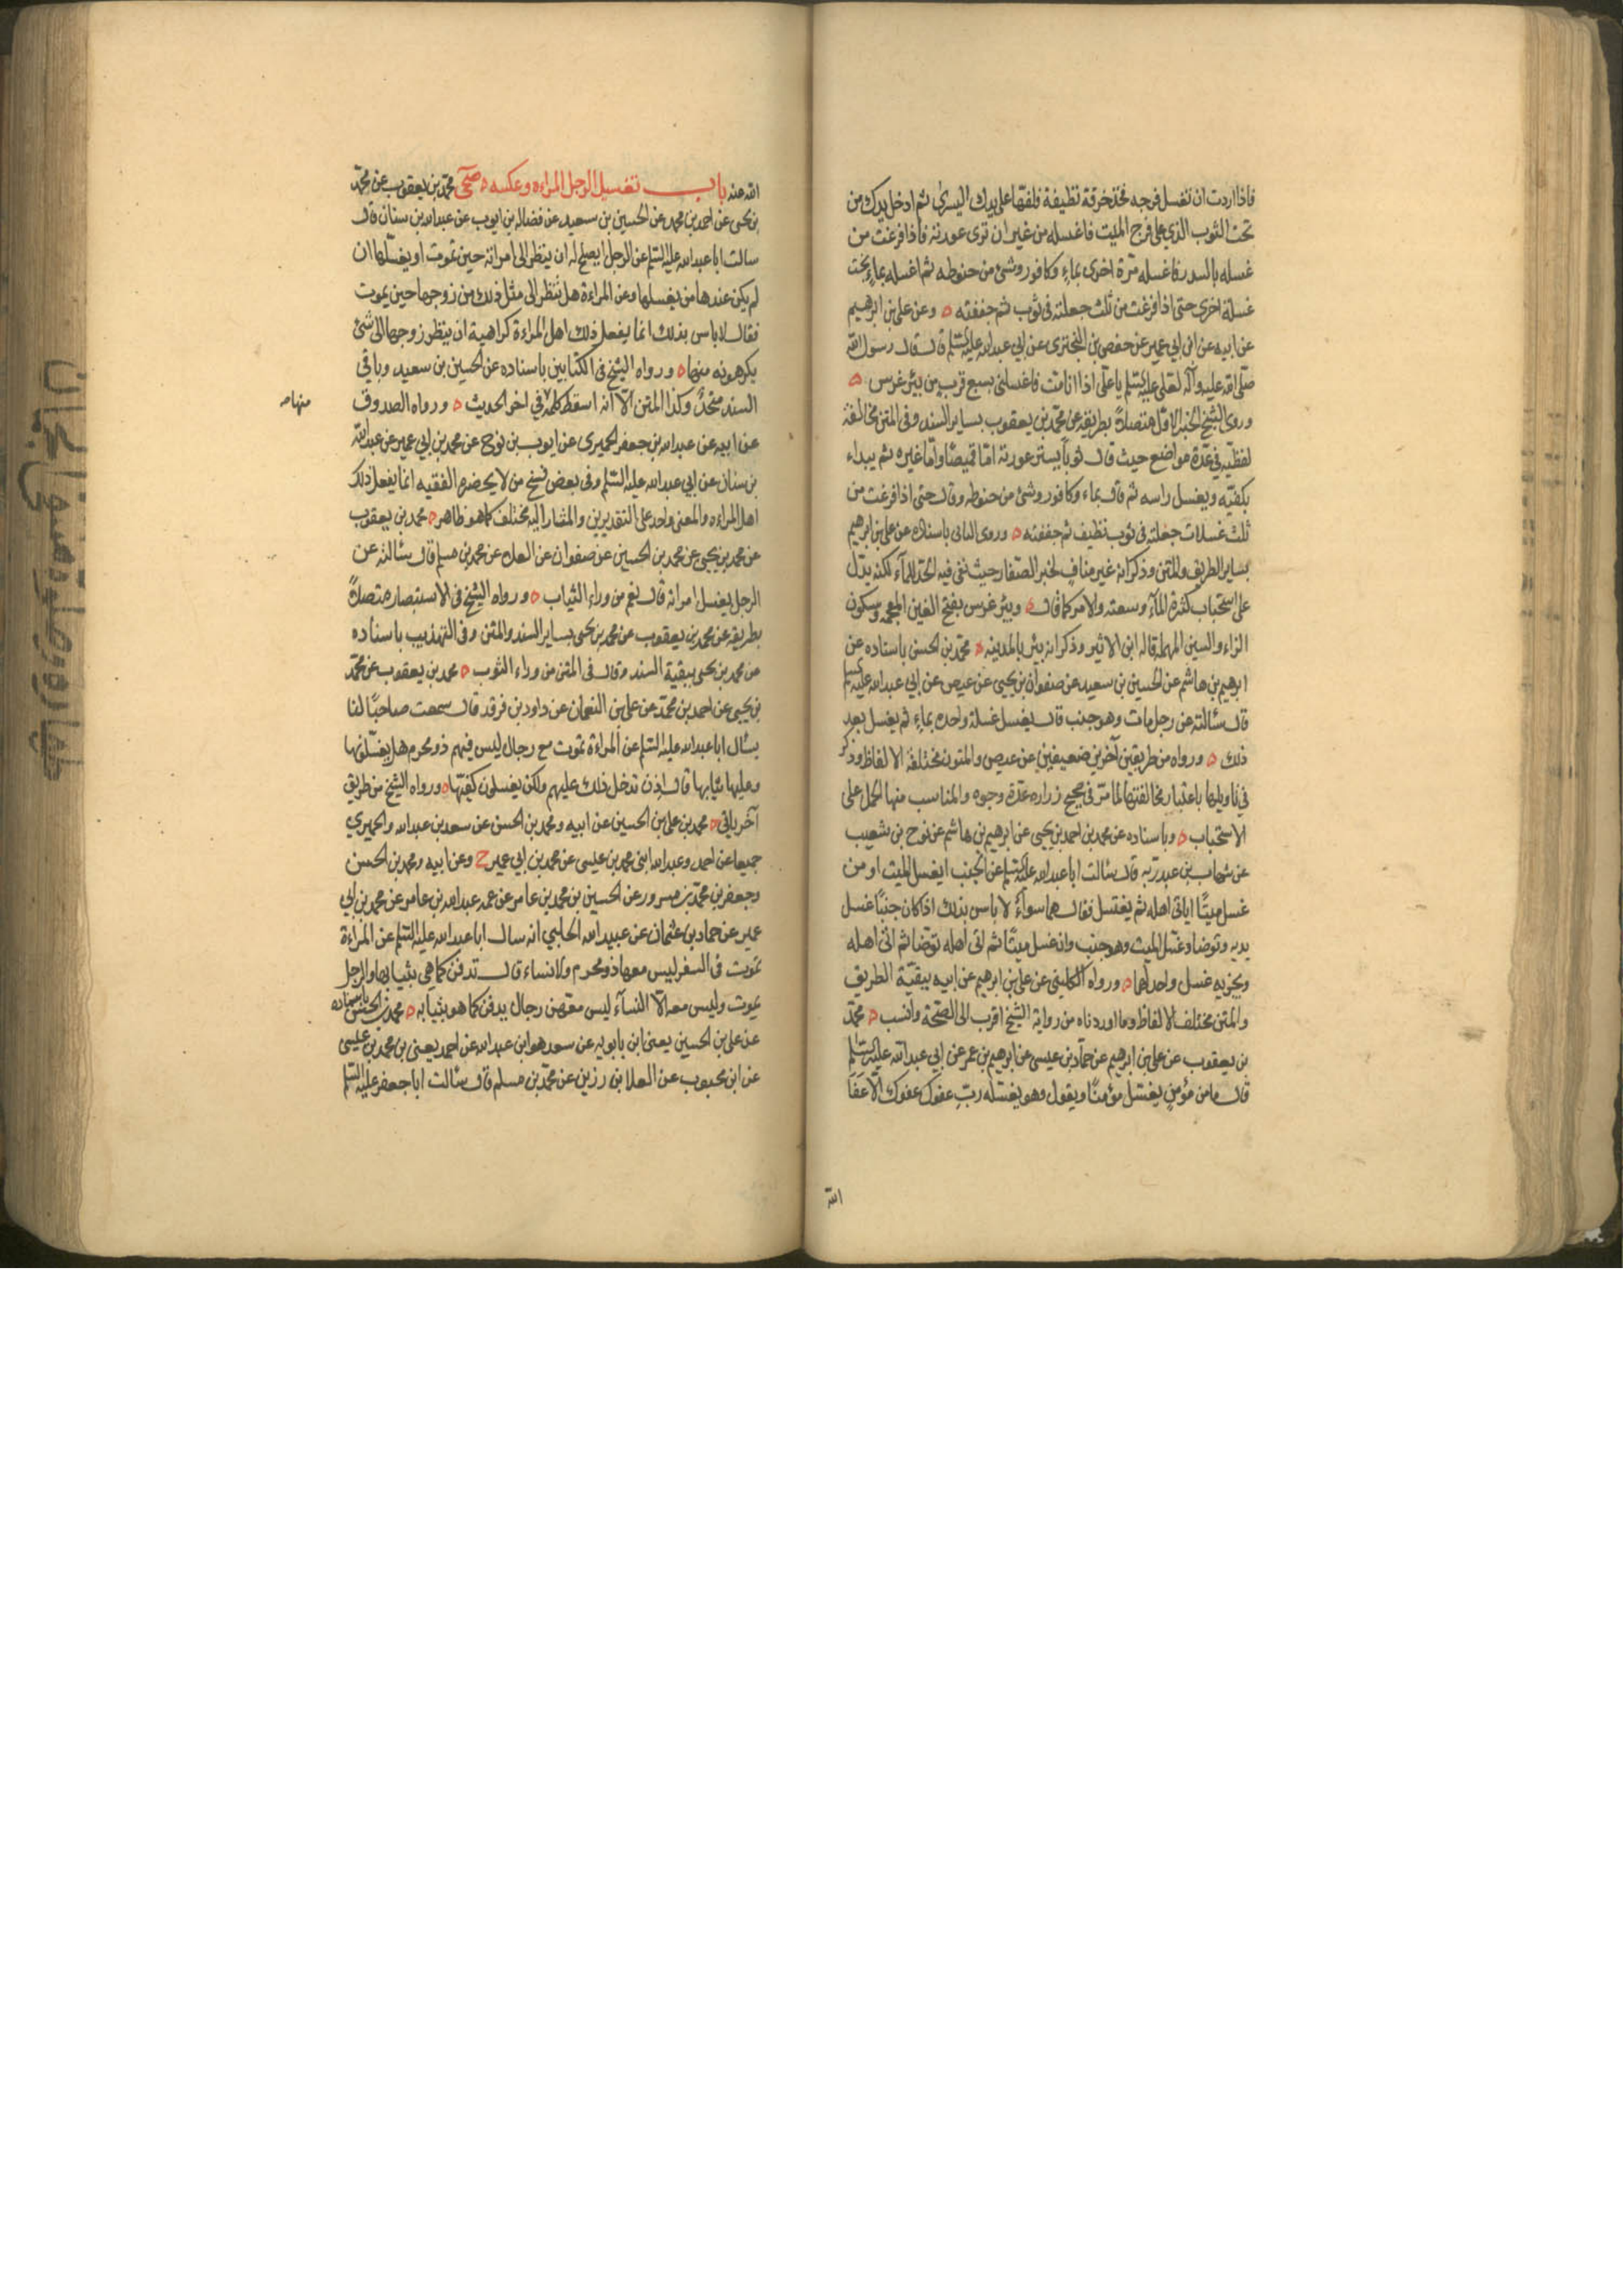 فاذا اردت ان تغسل فرجه فخذ خرقة نظيفة فلفها على يدك اليسرى ثم ادخل يدك من
تحت الثوب الذي على فرج الميت فاغسله من غير ان ترى عورته فاذا فرغت من
غسله بالسدر فاغسله مرة اخرى بماء وكافور وشئ من حنوطه ثم اغسله بماء بحت
غسلة اخرى حتى اذا فرغت من ثلث جعلته في ثوب ثم جففته ه وعن علي بن ابرهيم
عن ابيه عن ابن ابي عمير عن حفص بن البختري عن ابي عبدالله عليه السلم قال قال رسول الله
صلى الله عليه وآله لعلي عليه السلم يا علي اذا انا مت فاغسلني بسبع قرب من بئر غرس ه
وروى الشيخ الخبر الاول متصلا بطريقه عن محمد بن يعقوب بساير السند وفي المتن مخالفة
لفظية في عدة مواضع حيث قال ثوبا يستر عورته اما قميصا واما غيره ثم يبداء
بكفيه ويغسل راسه ثم قال بماء وكافور وشئ من حنوطه وقال حتى اذا فرغت من
ثلث غسلات جعلته في ثوب نظيف ثم جففته ه وروى الثاني باسناده عن علي بن ابرهيم
بساير الطريق والمتن وذكر انه غير مناف لخبر الصفار حيث نفى فيه الحد للمآء لكنه يدل
على استحباب كثرة المآء وسعته والامر كما قال ه وبئر غرس بفتح الغين المعجمه وسكون
الراء والسين المهمله قاله ابن الاثير وذكر انه بئر بالمدينه ه محمد بن الحسن باسناده عن
ابرهيم بن هاشم عن الحسين بن سعيد عن صفوان بن يحيى عن عيص عن ابي عبدالله عليه السلم
قال سئالته عن رجل مات وهو جنب قال يغسل غسلة واحده بماء ثم يغسل بعد
ذلك ه ورواه من طريقين آخرين ضعيفين عن عيص والمتون مختلفة الالفاظ وذكر
في تاويلها باعتبار مخالفتها لما مر في صحيح زراره عدة وجوه والمناسب منها الحمل على
الاستحباب ه وباسناده عن محمد بن احمد بن يحيى عن ابرهيم بن هاشم عن نوح بن شعيب
عن شهاب بن عبد ربه قال سئالت ابا عبدالله عليه السلم عن الجنب ايغسل الميت او من
غسل ميتا اياتي اهله ثم يغتسل فقال هما سواء لا باس بذلك اذا كان جنبا غسل
يديه وتوضا وغسل الميت وهو جنب وان غسل ميتا ثم اتى اهله توضا ثم اتى اهله
ويجزيه غسل واحد لهما ه ورواه الكليني عن علي بن ابرهيم عن ابيه ببقية الطريق
والمتن مختلف الالفاظ وما اوردناه من رواية الشيخ اقرب الى الصحة وانسب ه محمد
بن يعقوب عن علي بن ابرهيم عن حماد بن عيسى عن ابرهيم بن عمر عن ابي عبدالله عليه السلم
قال ما من مؤمن يغسل مؤمنا ويقول وهو يغسله رب عفوك عفوك الا عفا
الله
الله عنه باب تغسيل الرجل المراءه وعكسه ه صحى محمد بن يعقوب عن محمد
بن يحيى عن احمد بن محمد عن الحسين بن سعيد عن فضاله بن ايوب عن عبدالله بن سنان قال
سالت ابا عبدالله عليه السلم عن الرجل ايصلح له ان ينظر الى امراته حين تموت او يغسلها ان
لم يكن عندها من يغسلها وعن المراءة هل تنظر الى مثل ذلك من زوجها حين يموت
فقال لا باس بذلك انما يفعل ذلك اهل المراءة كراهية ان ينظر زوجها الى شئ
يكرهونه منها ه ورواه الشيخ في الكتابين باسناده عن الحسين بن سعيد وباقي
السند متحد وكذا المتن الا انه اسقط كلمة في اخر الحديث ه ورواه الصدوق
منها صه
عن ابيه عن عبدالله بن جعفر الحميري عن ايوب بن نوح عن محمد بن ابي عمير عن عبدالله
بن سنان عن ابي عبدالله عليه السلم وفي بعض نسخ من لا يحضره الفقيه انما يفعل ذلك
اهل المراءه والمعنى واحد على التقديرين والمشار اليه مختلف كما هو ظاهر ه محمد بن يعقوب
عن محمد بن يحيى عن محمد بن الحسين عن صفوان عن العلاء عن محمد بن مسلم قال سئالته عن
الرجل يغسل امراته قال نعم من وراء الثياب ه ورواه الشيخ في الاستبصار متصلا
بطريقه عن محمد بن يعقوب عن محمد بن يحيى بساير السند والمتن وفي التهذيب باسناده
عن محمد بن يحيى ببقية السند وقال في المتن من وراء الثوب ه محمد بن يعقوب عن محمد
بن يحيى عن احمد بن محمد عن علي بن النعمان عن داود بن فرقد قال سمعت صاحبا لنا
يسئال ابا عبدالله عليه السلم عن المراءة تموت مع رجال ليس فيهم ذو محرم هل يغسلونها
وعليها ثيابها قال اذن تدخل ذلك عليهم ولكن يغسلون كفيها ه ورواه الشيخ من طريق
آخر ياتي ه محمد بن علي بن الحسين عن ابيه ومحمد بن الحسن عن سعد بن عبدالله والحميري
جميعا عن احمد وعبدالله ابني محمد بن عيسى عن محمد بن ابي عمير ح وعن ابيه ومحمد بن الحسن
وجعفر بن محمد بن مسرور عن الحسين بن محمد بن عامر عن عمه عبدالله بن عامر عن محمد بن ابي
عمير عن حماد بن عثمان عن عبيدالله الحلبي انه سال ابا عبدالله عليه السلم عن المراءة
تموت في السفر ليس معها ذو محرم ولا نساء قال تدفن كما هي بثيابها والرجل
يموت وليس معه الا النسآء ليس معهن رجال يدفن كما هو بثيابه ه محمد بن الحسن باسناده
عن علي بن الحسين يعني ابن بابويه عن سعد هو ابن عبدالله عن احمد يعني بن محمد بن عيسى
عن ابن محبوب عن العلا بن رزين عن محمد بن مسلم قال سئالت ابا جعفر عليه السلم